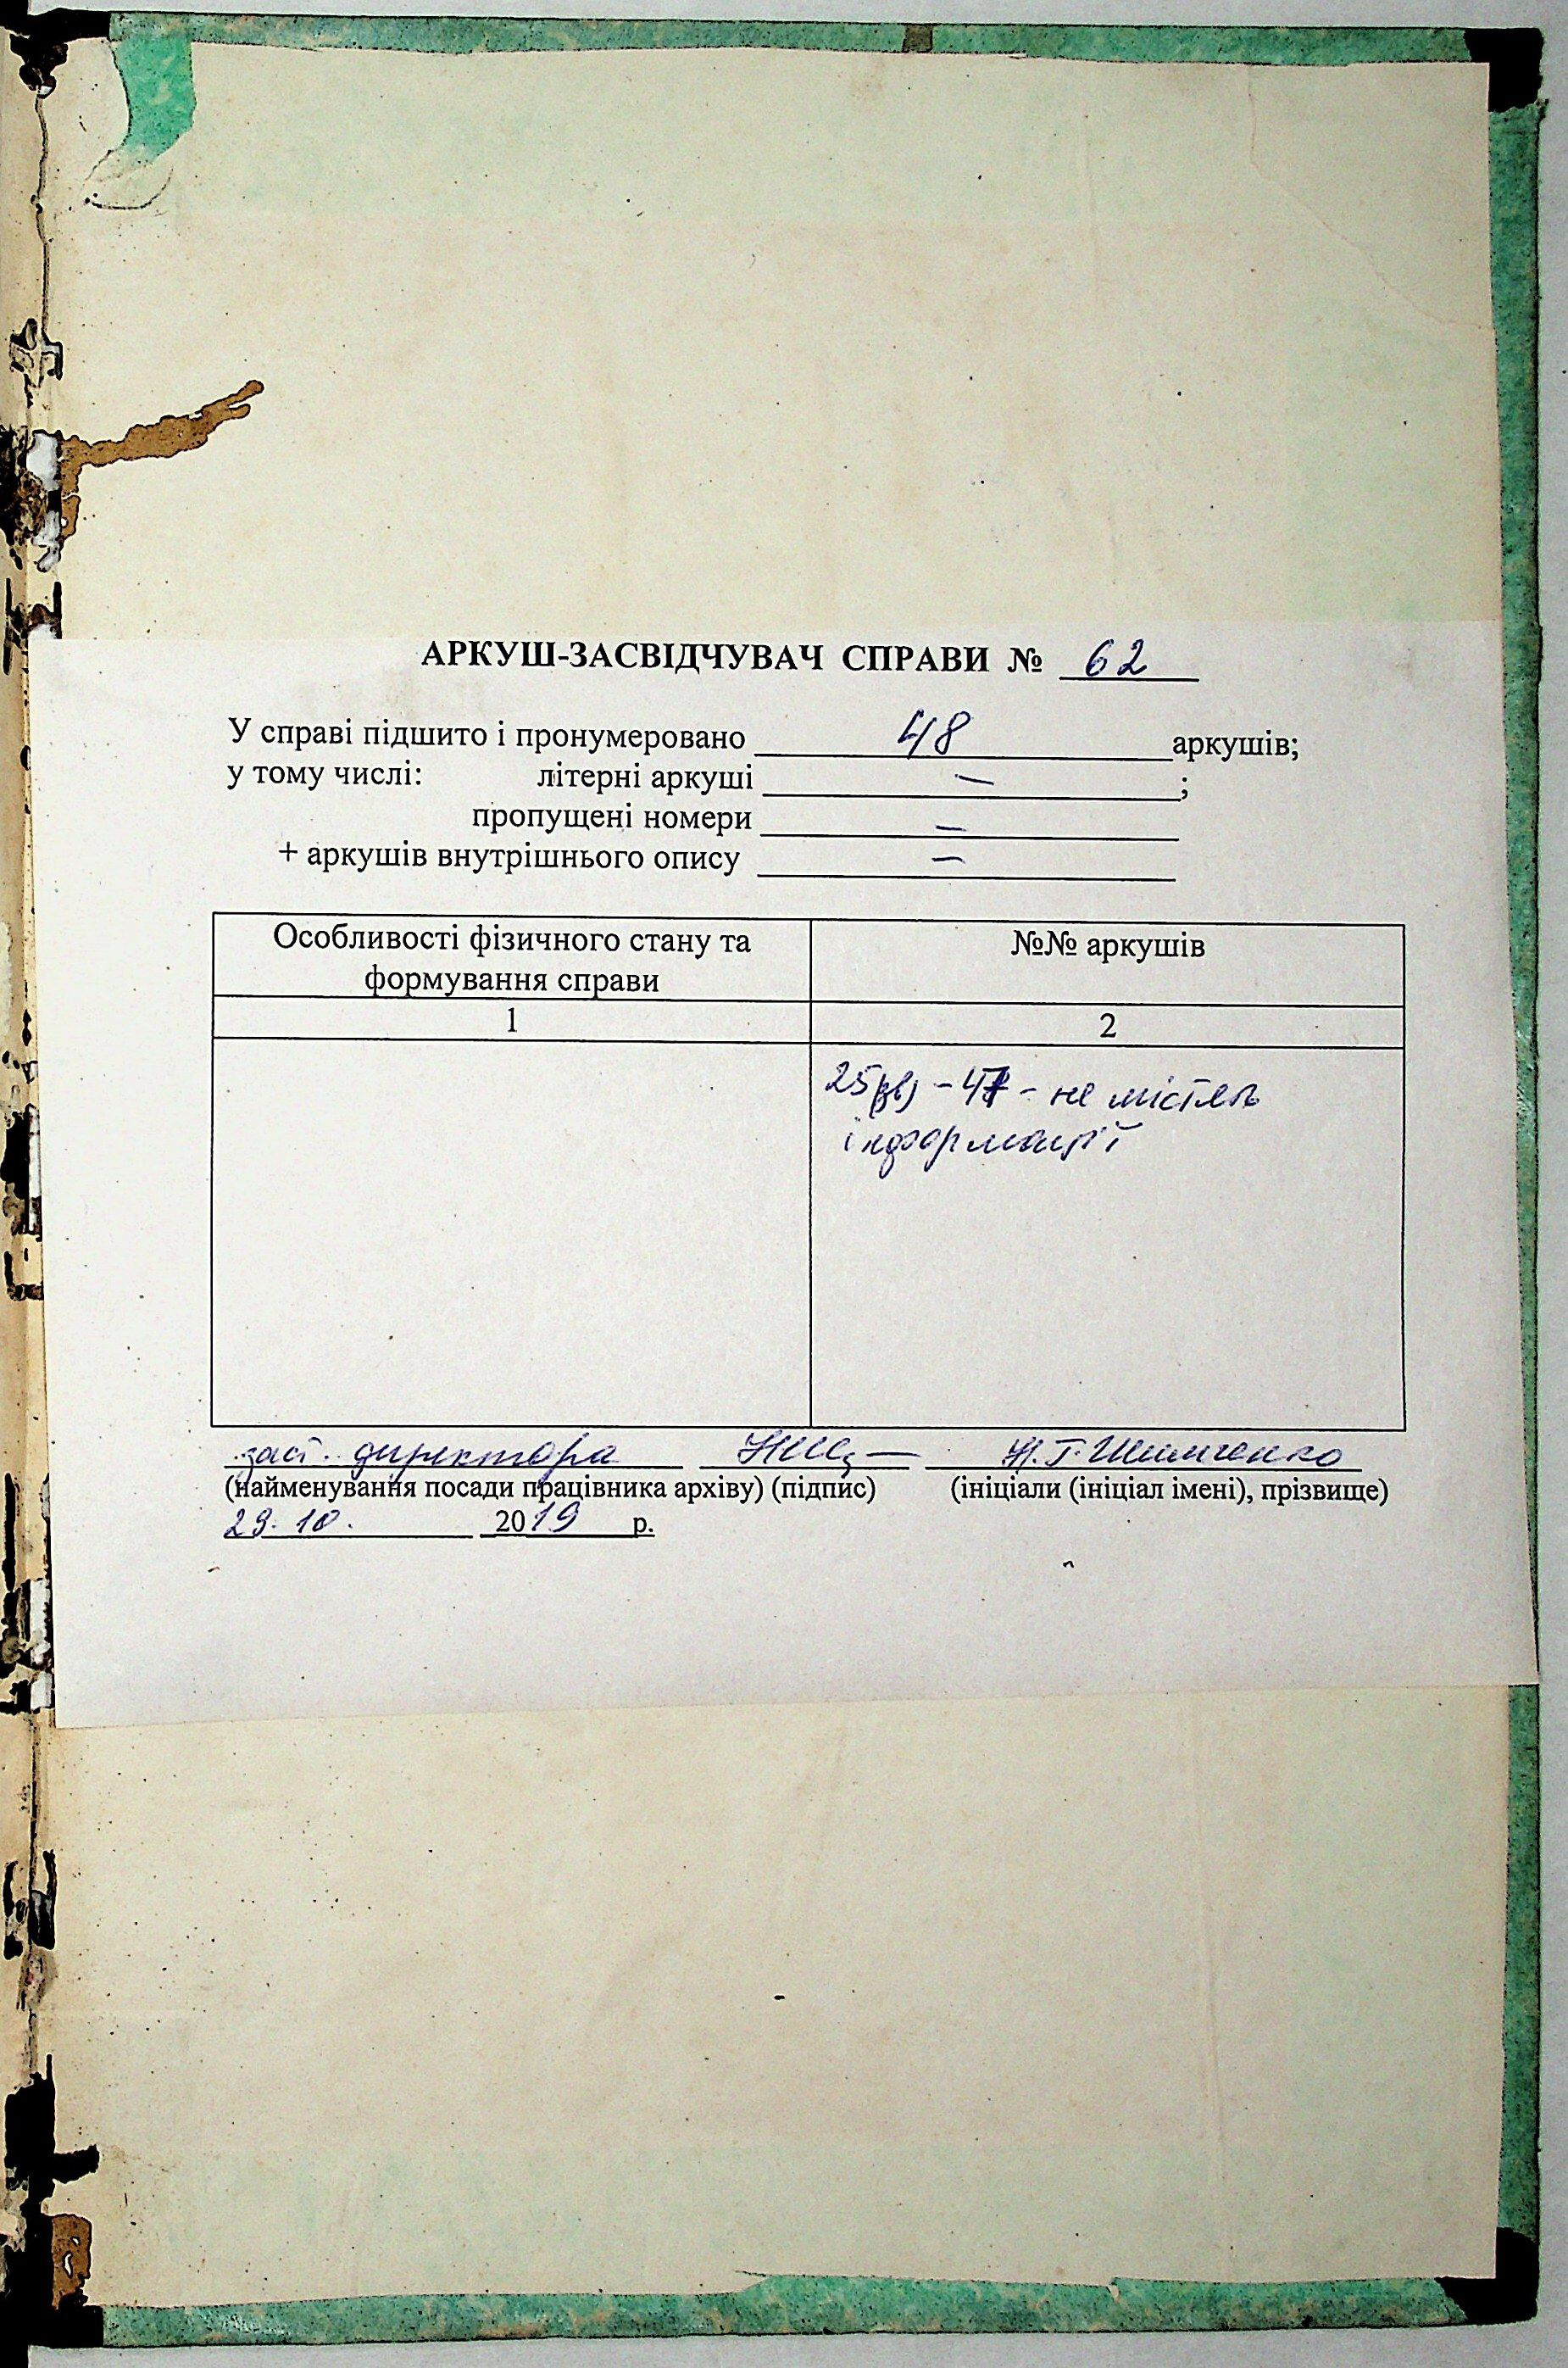 АРКУШ-ЗАСВІДЧУВАЧ СПРАВИ № 62
У справі підшито і пронумеровано 48 аркушів;
у тому числі: літерні аркуші — ;
пропущені номери —
+ аркушів внутрішнього опису —
Особливості фізичного стану та формування справи
№№ аркушів
1 2
25(зв) - 47 - не містять
інформації
заст. директора Н.Г. Шимченко
(найменування посади працівника архіву) (підпис) (ініціали (ініціал імені), прізвище)
29.10. 2019 р.